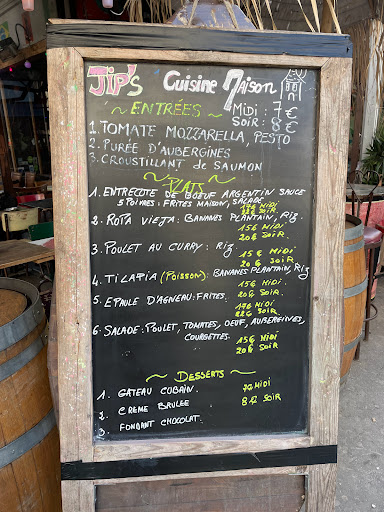 JIP'S Cuisine Maison
~ ENTRÉES ~ MIDI : 7€
SOIR : 8€
1. TOMATE MOZZARELLA, PESTO
2. PURÉE D'AUBERGINES
3. CROUSTILLANT de SAUMON
~ PLATS ~
1. ENTRECOTE DE BOEUF ARGENTIN SAUCE
5 POIVRES: FRITES MAISON, SALADE
17€ MIDI
22€ SOIR
2. ROPA VIEJA: BANANES PLANTAIN, Riz.
15€ MIDI
20€ SOIR
3. POULET AU CURRY: Riz
15€ MIDI
20€ SOIR
4. TILAPIA (POISSON): BANANES PLANTAIN, Riz
15€ MIDI
20€ SOIR
5. EPAULE D'AGNEAU: FRITES.
17€ MIDI
22€ SOIR
6. SALADE: POULET, TOMATES, OEUF, AUBERGINES,
COURGETTES.
15€ MIDI
20€ SOIR
~ DESSERTS ~
1. GATEAU CUBAIN. 7€ MIDI
2. CREME BRULEE 8€ SOIR
3. FONDANT CHOCOLAT.